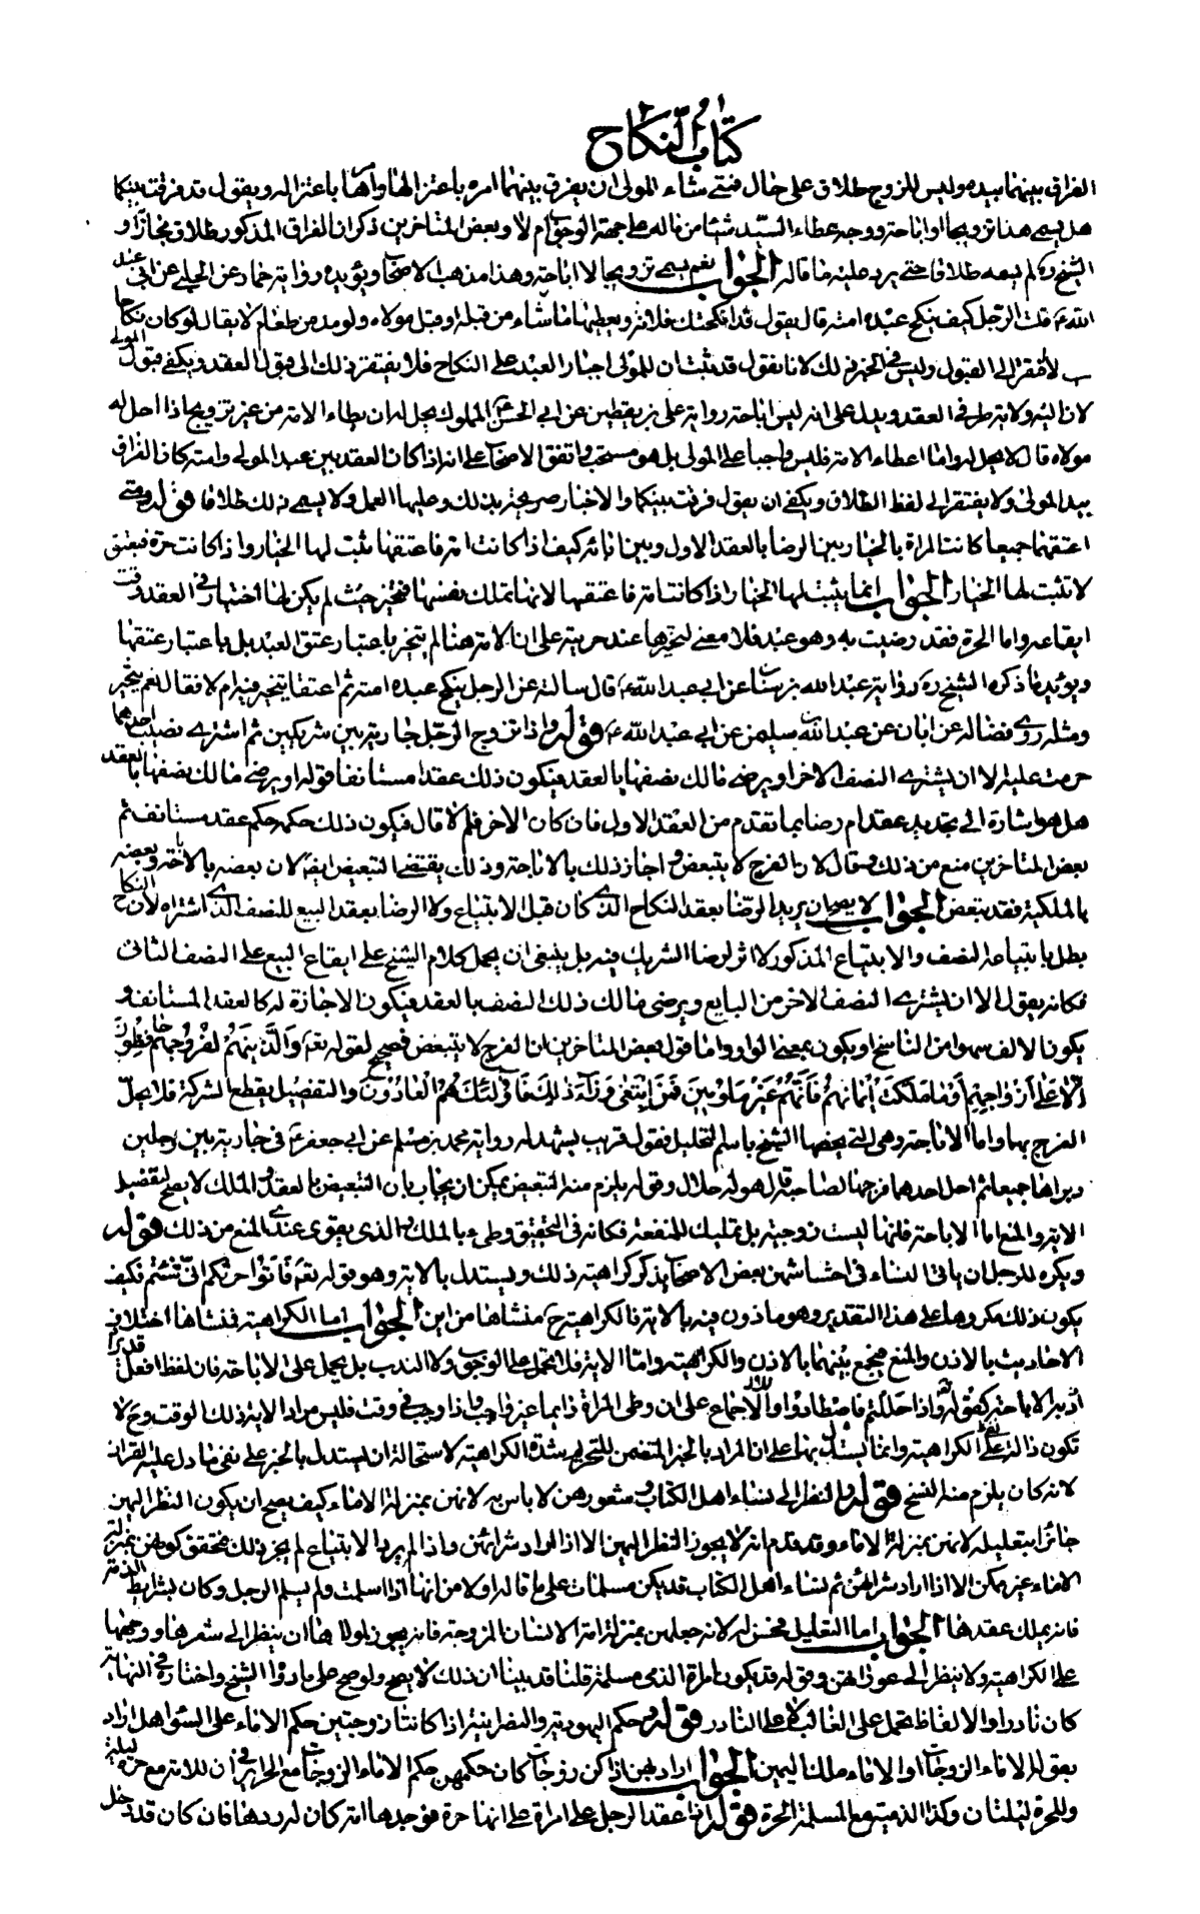 كتاب النكاح
الفراق بينهما بيده وليس للزوج طلاق على حال فمتى شاء المولى ان يفرق بينهما امره باعتزالها وامرها باعتزاله ويقول قد فرقت بينكما
هل يسمى هذا تزويجا او اباحة ووجه عطاء السيد شيئا من ماله على جهة الوجوب ام لا وبعض المتاخرين ذكر ان الفراق المذكور طلاق مجازا و
الشيخ ره لم يسمه طلاقا حتى يرد عليه ما قاله الجواب نعم يسمى تزويجا لا اباحة وهذا مذهب الاصحاب ويؤيده رواية حماد عن الحلبي عن ابي عبد
الله ع قلت الرجل كيف ينكح عبده امته قال يقول قد انكحتك فلانة ويعطيها ما شاء من قبله او قبل مولاه ولو مد من طعام لا يقال لو كان نكاحا
لافتقر الى القبول وليس في الخبر ذلك لانا نقول قد ثبت ان للمولى اجبار العبد على النكاح فلا يفتقر ذلك الى قبول العقد ويكفي قبول المولى
لان اليه ولاية طرفي العقد ويدل على انه ليس اباحة رواية علي بن يقطين عن ابي الحسن ع المملوك يحل له ان يطاء الامة من غير تزويج اذا احل له
مولاه قال لا يحل له واما اعطاء الامة فليس واجبا على المولى بل هو مستحب واتفق الاصحاب على انه اذا كان العقد بين عبد المولى وامته كان الفراق
بيد المولى ولا يفتقر الى لفظ الطلاق ويكفي ان يقول فرقت بينكما والاخبار صريحة بذلك وعليها العمل ولا يسمى ذلك طلاقا قوله ومتى
اعتقهما جميعا كانت المراة بالخيار بين الرضا بالعقد الاول وبين ابائه كيف اذا كانت امة فاعتقها يثبت لها الخيار واذا كانت حرة فيعتق
لا تثبت لها الخيار الجواب انما يثبت لها الخيار اذا كانت امة فاعتقها لانها تملك نفسها فتخير حيث لم يكن لها اختيار في العقد وقت
ايقاعه واما الحرة فقد رضيت به وهو عبد فلا معنى لتخيرها عند حريته على ان الامة هنا لم يتخير باعتبار عتق العبد بل باعتبار عتقها
ويؤيد ما ذكره الشيخ ره رواية عبد الله بن سنان عن ابي عبد الله ع قال سالته عن الرجل ينكح عبده امته ثم اعتقا يتخير فيه ام لا فقال نعم يتخير
ومثله روى فضالة عن ابان عن عبد الله بن سليمن عن ابي عبد الله ع قوله واذا تزوج الرجل جارية بين شريكين ثم اشترى نصيب احدهما
حرمت عليه الا ان يشترى النصف الاخر او يرضى مالك نصفها بالعقد فيكون ذلك عقدا مستانفا قوله او يرضى مالك نصفها بالعقد
هل هو اشارة الى تجديد عقد ام رضا بما تقدم من العقد الاول فان كان الاخر فلم لا قال فيكون ذلك حكمه حكم عقد مستانف ثم
بعض المتاخرين منع من ذلك وقال لان الفرج لا يتبعض واجاز ذلك بالاباحة وذلك يقتضى التبعيض ايضا لان بعضه بالاباحة وبعضه
بالملكية فقد تبعض الجواب لا يصح ان يريد الرضا بعقد النكاح الذي كان قبل الابتياع ولا الرضا بعقد البيع للنصف الذي اشتراه لان النكاح
بطل بابتياعه النصف والابتياع المذكور لا اثر لرضا الشريك فيه بل ينبغي ان يحمل كلام الشيخ على ايقاع البيع على النصف الثانى
فكانه يقول الا ان يشترى النصف الاخر من البايع ويرضى مالك ذلك النصف بالعقد فيكون الاجازة له كالعقد المستانف و
يكون الالف سهوا من الناسخ او يكون بمعنى الواو واما قول بعض المتاخرين ان الفرج لا يتبعض فصحيح لقوله تعالى وَالَّذينَ هُمْ لِفُرُوجِهِمْ حافِظُونَ
اِلّا عَلى اَزْواجِهِمْ اَوْ ما مَلَكَتْ اَيْمانُهُمْ فَاِنَّهُمْ غَيْرُ مَلُومينَ فَمَنِ ابْتَغى وَراءَ ذلِكَ فَاُولئِكَ هُمُ الْعادُونَ والتفصيل يقطع الشركة فلا يحل
الفرج بهما واما الاباحة وهى التي يخصها الشيخ باسم التحليل فقوله قريب يشهد له رواية محمد بن مسلم عن ابي جعفر ع في جارية بين رجلين
دبراها جميعا ثم احل احدهما فرجها لصاحبه قال هو له حلال وقوله يلزم منه التبعيض يمكن ان يجاب بان التبعيض بالعقد والملك لا يصح لتفضيل
الاية والمنع اما الاباحة فانها ليست زوجية بل تمليك للمنفعة فكانه في التحقيق وطىء بالملك والذي يقوى عندي المنع من ذلك قوله
ويكره للرجل ان ياتي النساء في احشاشهن بعض الاصحاب يذكر كراهية ذلك ويستدل بالاية وهو قوله تعالى فَاْتُوا حَرْثَكُمْ اَنّى شِئْتُمْ فكيف
يكون ذلك مكروها على هذا التقدير وهو ماذون فيه بالاية فالكراهية ح منشاها من اين الجواب اما الكراهية فمنشاها اختلاف
الاحاديث بالاذن والمنع فيجمع بينهما بالاذن والكراهية واما الاية فلا تحمل على الوجوب ولا الندب بل يحمل على الاباحة فان لفظ افعل قد يرا
اد به الاباحة كقوله تعالى وَاِذا حَلَلْتُمْ فَاصْطادُوا والاجماع على ان وطى المراة دايما غير واجب واذا وجب في وقت فليس مراد الاية ذلك الوقت وح لا
تكون دالة على نفي الكراهية وانما يستدل بها على ان المراد بالخبر المتضمن للتحريم شدة الكراهية لاستحالة ان يستدل بالخبر على نفي ما دل عليه القران
لانه كان يلزم منه النسخ قوله والنظر الى نساء اهل الكتاب وشعورهن لا باس به لانهن بمنزلة الاماء كيف يصح ان يكون النظر اليهن
جائزا بتعليله لانهن بمنزلة الاماء وقد قدم انه لا يجوز النظر اليهن الا اذا اراد شرائهن واذا لم يرد الابتياع لم يجز ذلك فتحقق كونهن بمنزلة
الاماء غير ممكن الا اذا اراد شرائهن ثم نساء اهل الكتاب قد يكن مسلمات على ما قاله اولا من انها اذا اسلمت ولم يسلم الرجل وكان بشرايط الذمة
فانه يملك عقدها الجواب اما التعليل فحسن لانه جعلهن بمنزلة امة الانسان المزوجة فانه يجوز لمولاها ان ينظر الى شعرها ووجهها
على الكراهية ولا ينظر الى عورتهن وقوله قد يكون امراة الذمي مسلمة قلنا قد بينا ان ذلك لا يصح ولو صح على ما رواه الشيخ واختاره في النهاية
كان نادرا والالفاظ تحمل على الغالب لا على النادر قوله وحكم اليهودية والنصرانية اذا كانتا زوجتين حكم الاماء على السواء هل اراد
بقوله الاماء الزوجات او الاماء ملك اليمين الجواب اراد بهن اذا كن زوجات كان حكمهن حكم الاماء الزوجات مع الحراير في ان للامة مع حرة ليلة
وللحرة ليلتان وكذا الذمية مع المسلمة الحرة قوله اذا عقد الرجل على امراة على انها حرة فوجدها امة كان له ردها فان كان قد دخل